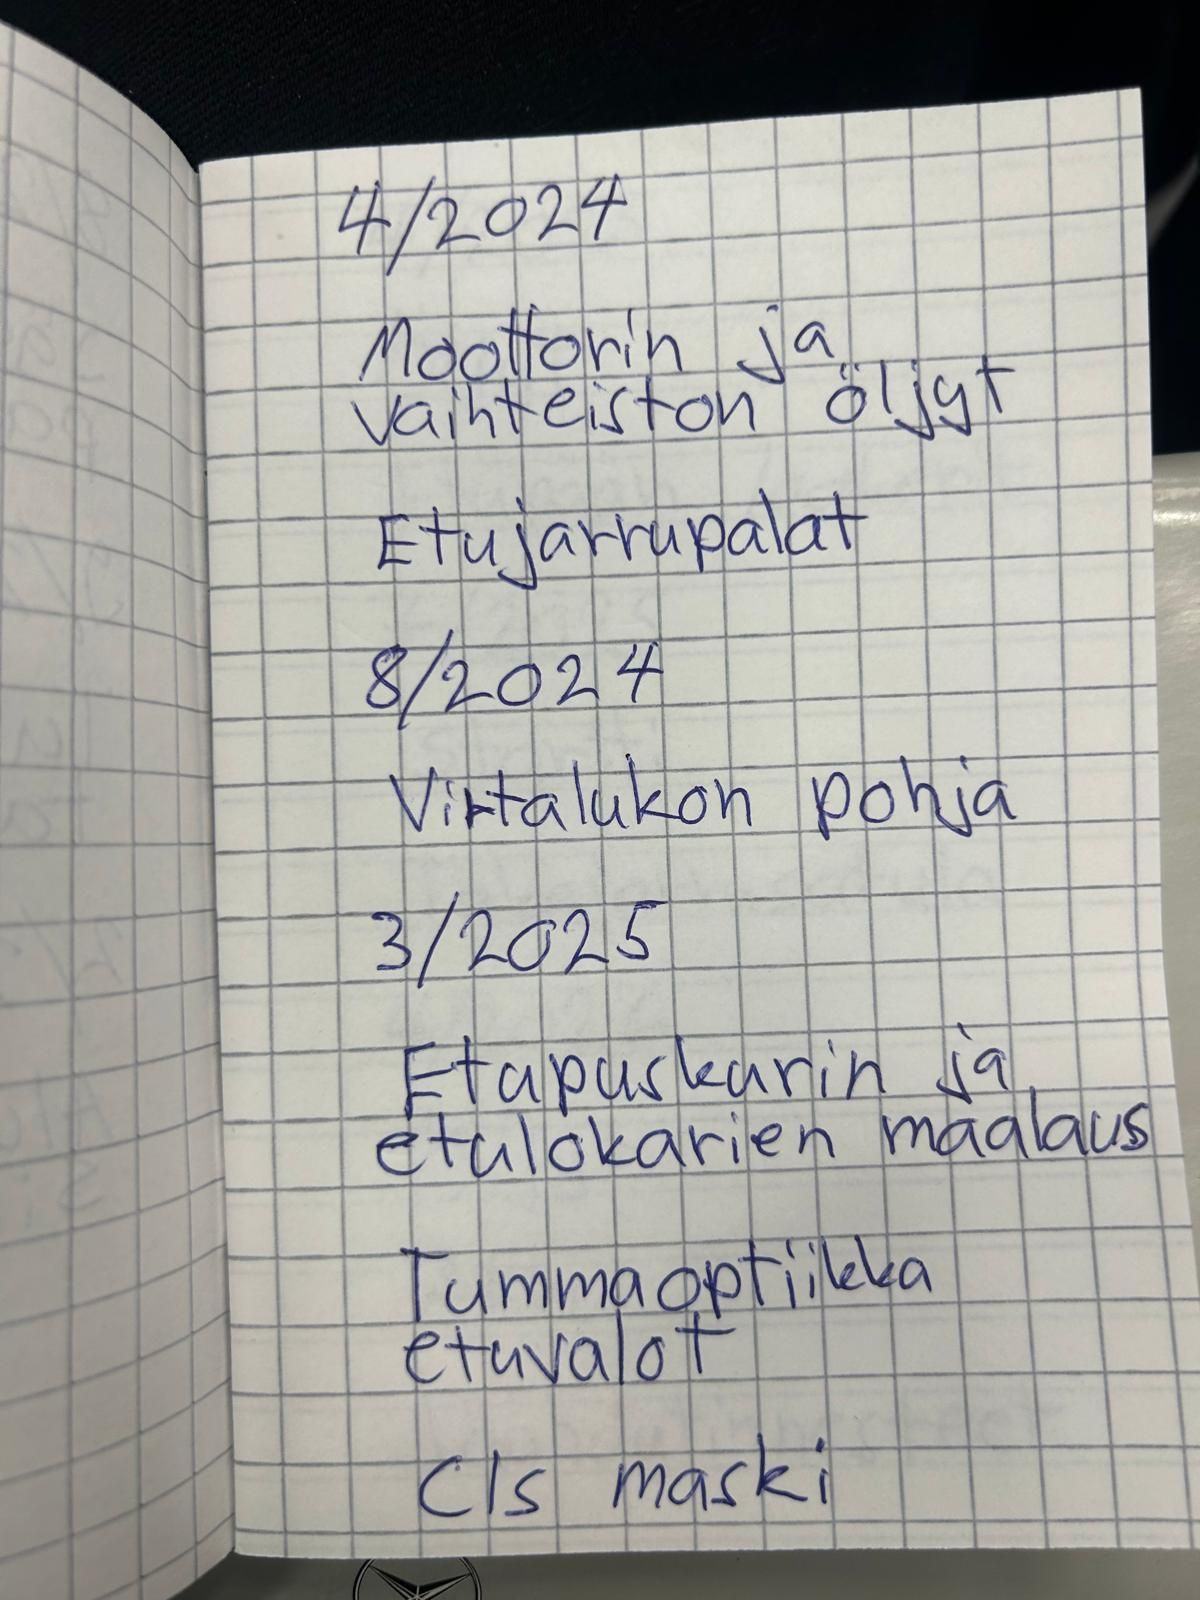 4/2024
Moottorin ja
vaihteiston öljyt
Etujarrupalat
8/2024
Virtalukon pohja
3/2025
Etupuskurin ja
etulokarien maalaus
Tummaoptiikka
etuvalot
Cls maski